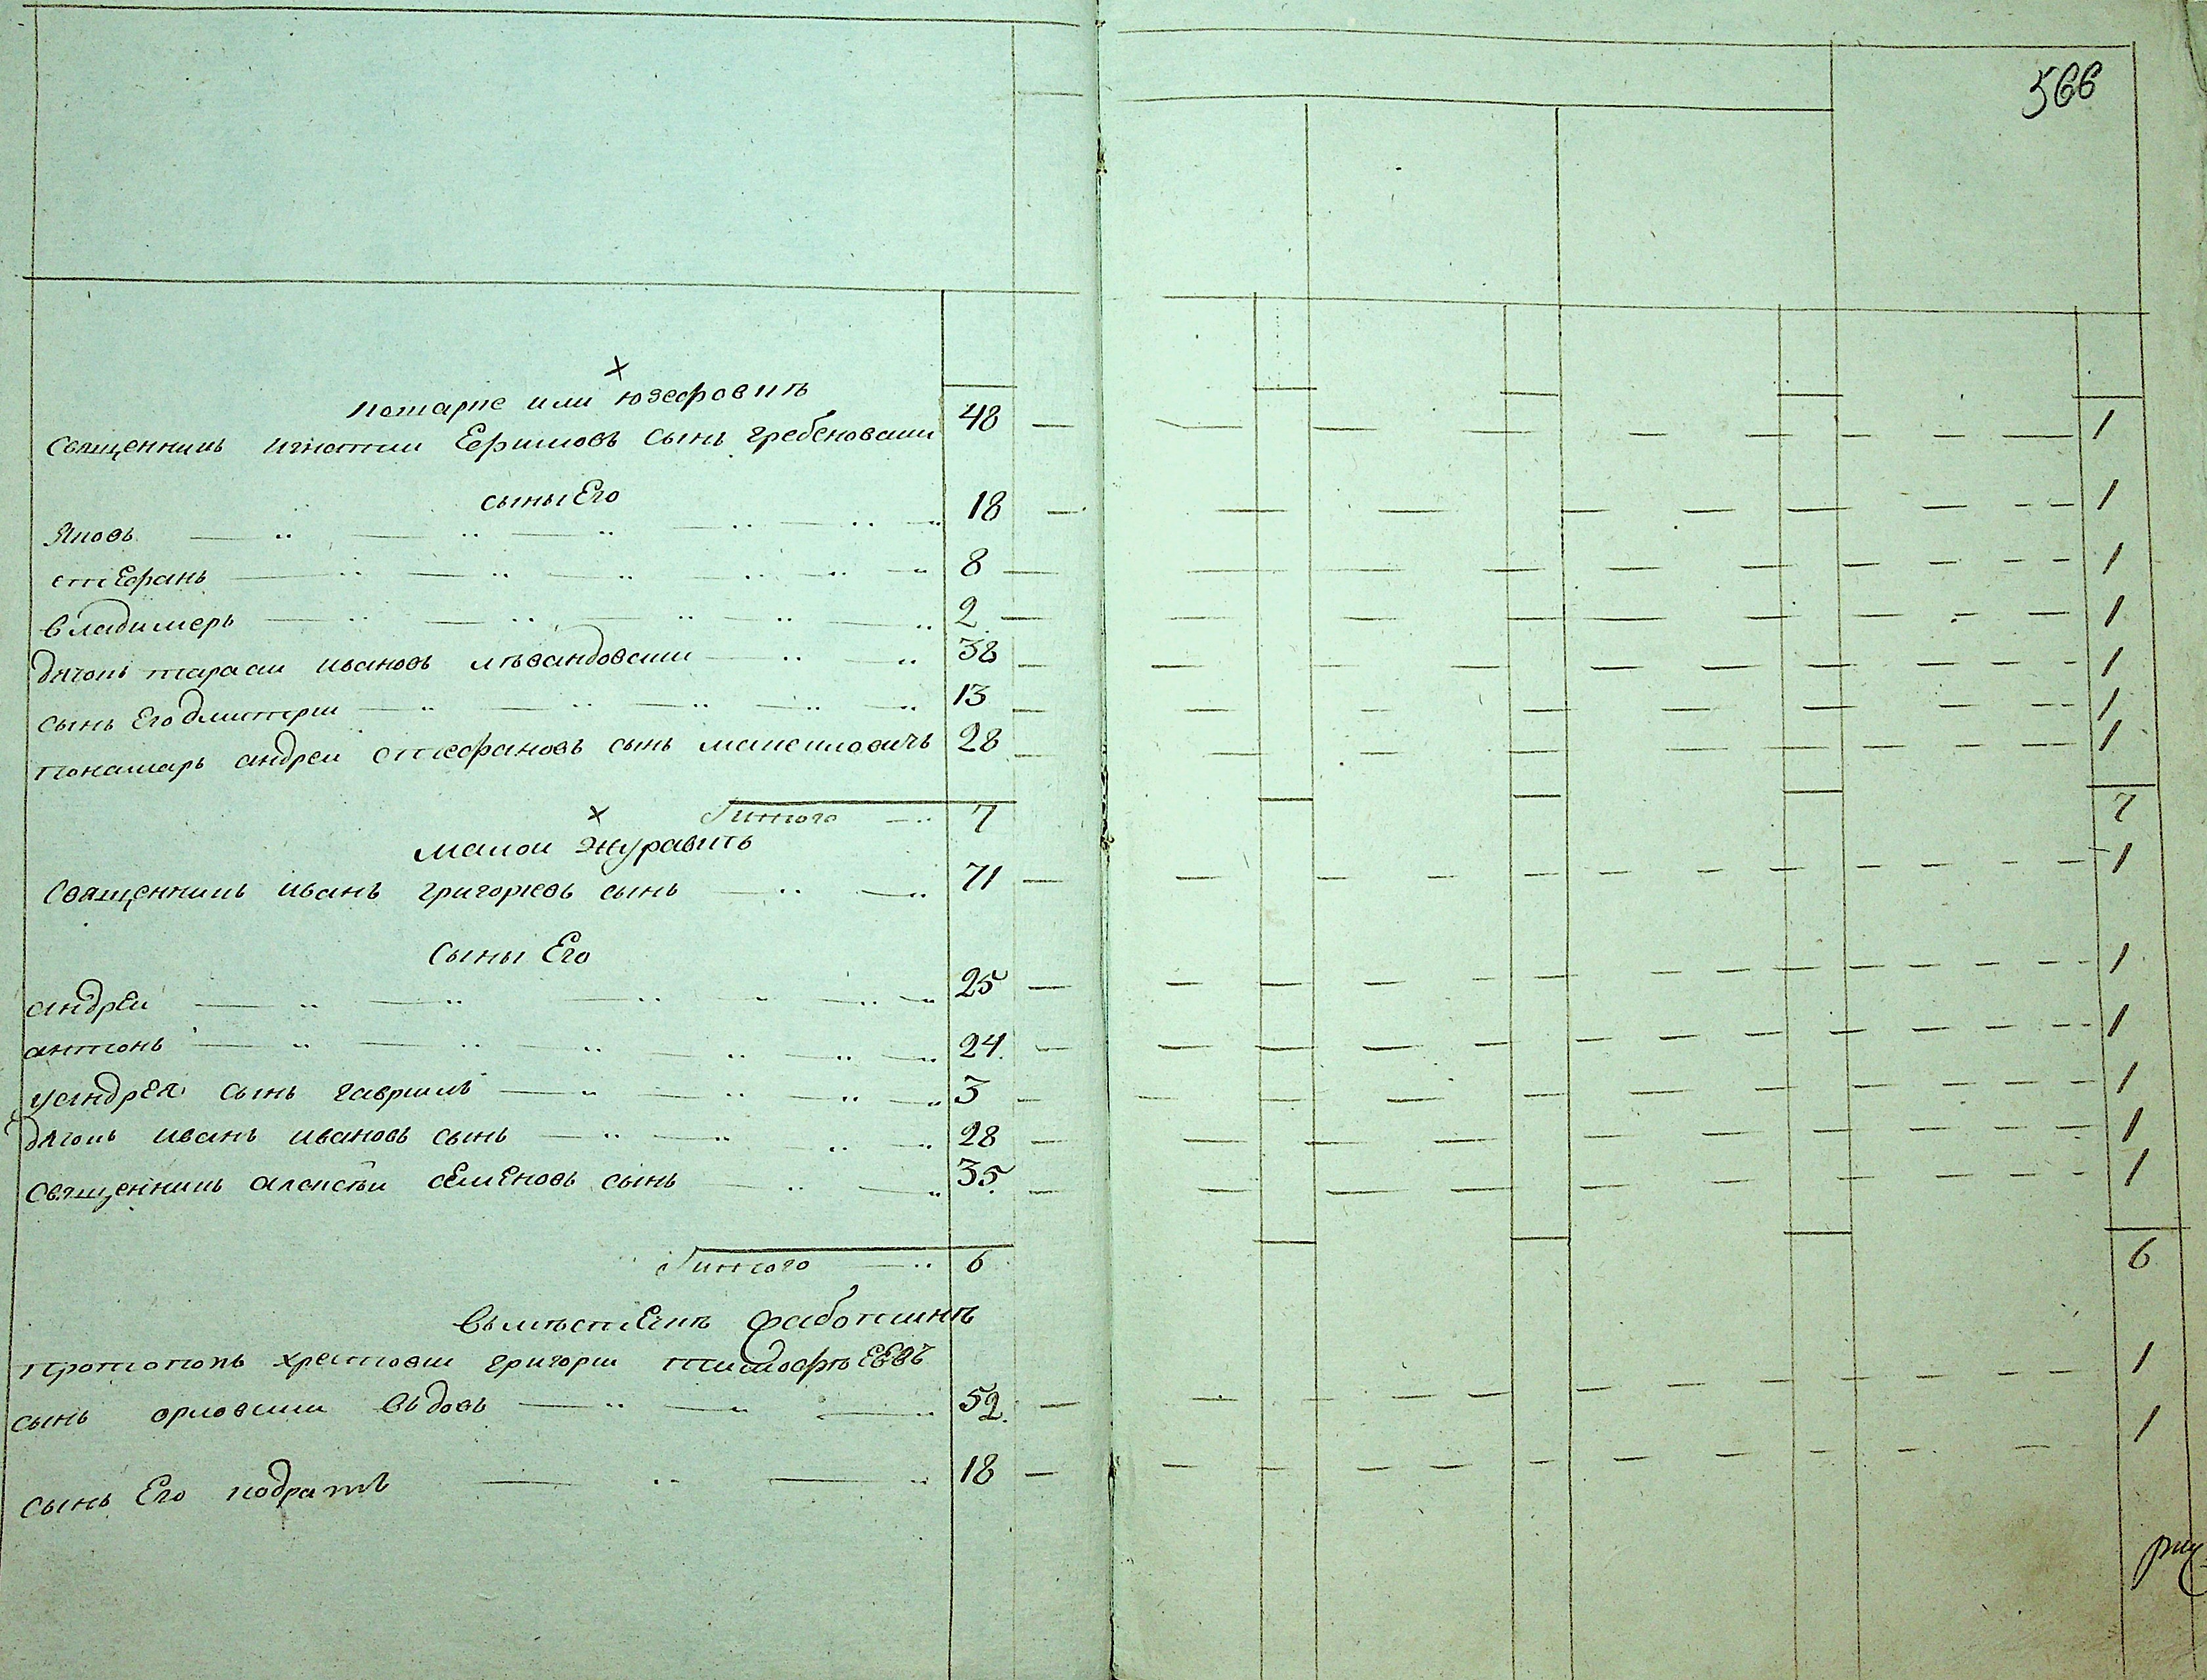 566
х
потарпе или юзефовкѣ
священникъ игнатии Ефимовъ сынъ гребеновскии 48 1
сыны Его
Яковъ 18 1
стЕфанъ 8 1
владимеръ 2 1
дячокъ тараси ивановъ лѣвандовскии 38 1
сынъ Его дмитрии 13 1
понамарь андреи стефановъ сынъ максимовичъ 28 1
Итого 7 7
х
малои журавкѣ
священникъ иванъ григориевъ сынъ 71 1
сыны Его
андрЕи 25 1
антонъ 24 1
у андрЕя сынъ гаврило 3 1
дячокъ иванъ ивановъ сынъ 28 1
священникъ алексѣи сЕмЕновъ сынъ 35 1
Итого 6 6
вмѣстЕчкѣ
протопопъ хрестовии григории тимофѣЕвъ
сынъ орловскии вдовъ 52 1
сынъ Его кодратъ 18 1